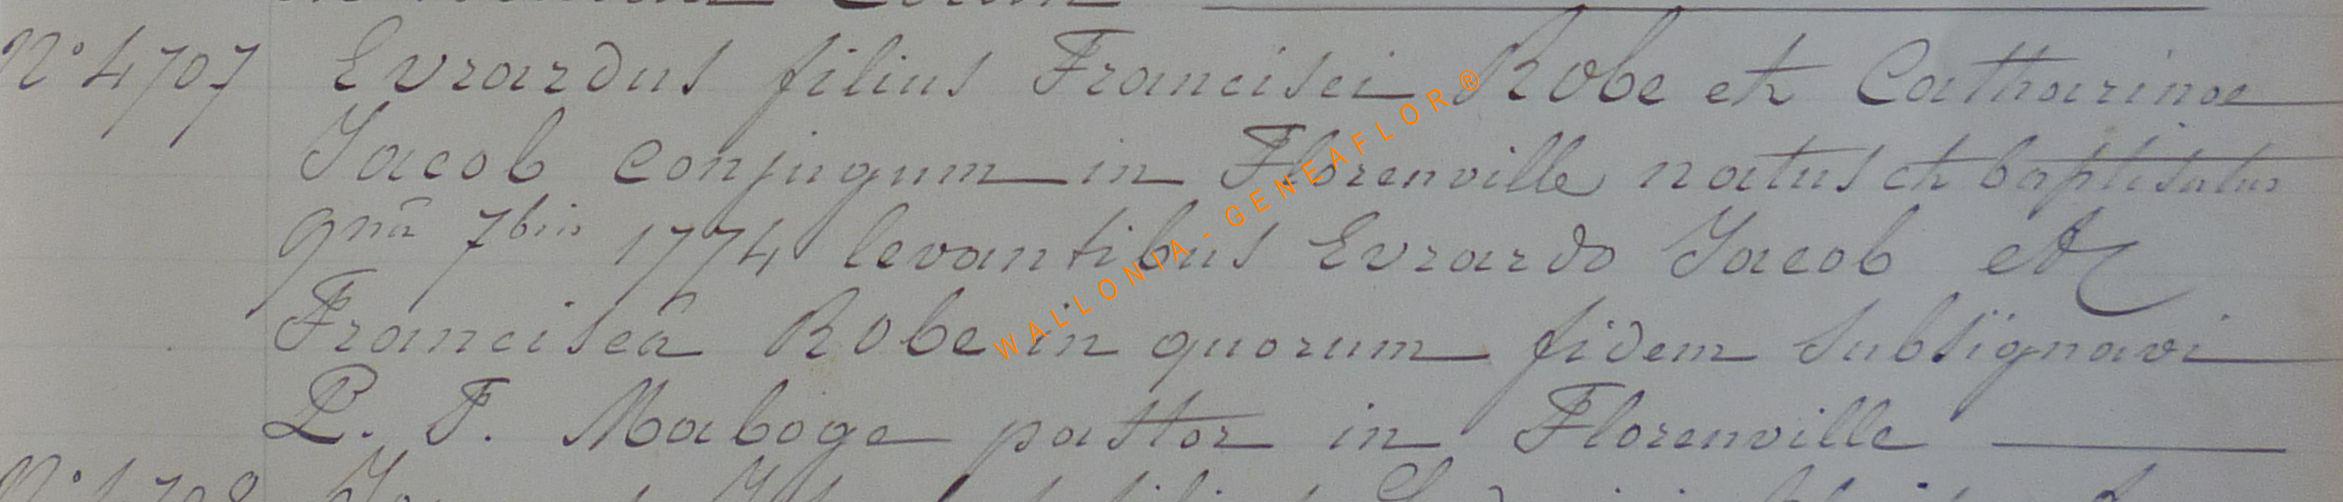 N° 4707 Evrardus filius Francisci Robe et Catharinae
Jacob conjugum in Florenville natus et baptisatus
9nâ 7bris 1774 levantibus Evrardo Jacob et
Franciscâ Robe in quorum fidem subsignavi
P. F. Maboge pastor in Florenville
WALLONIA - GENEAFLOR®